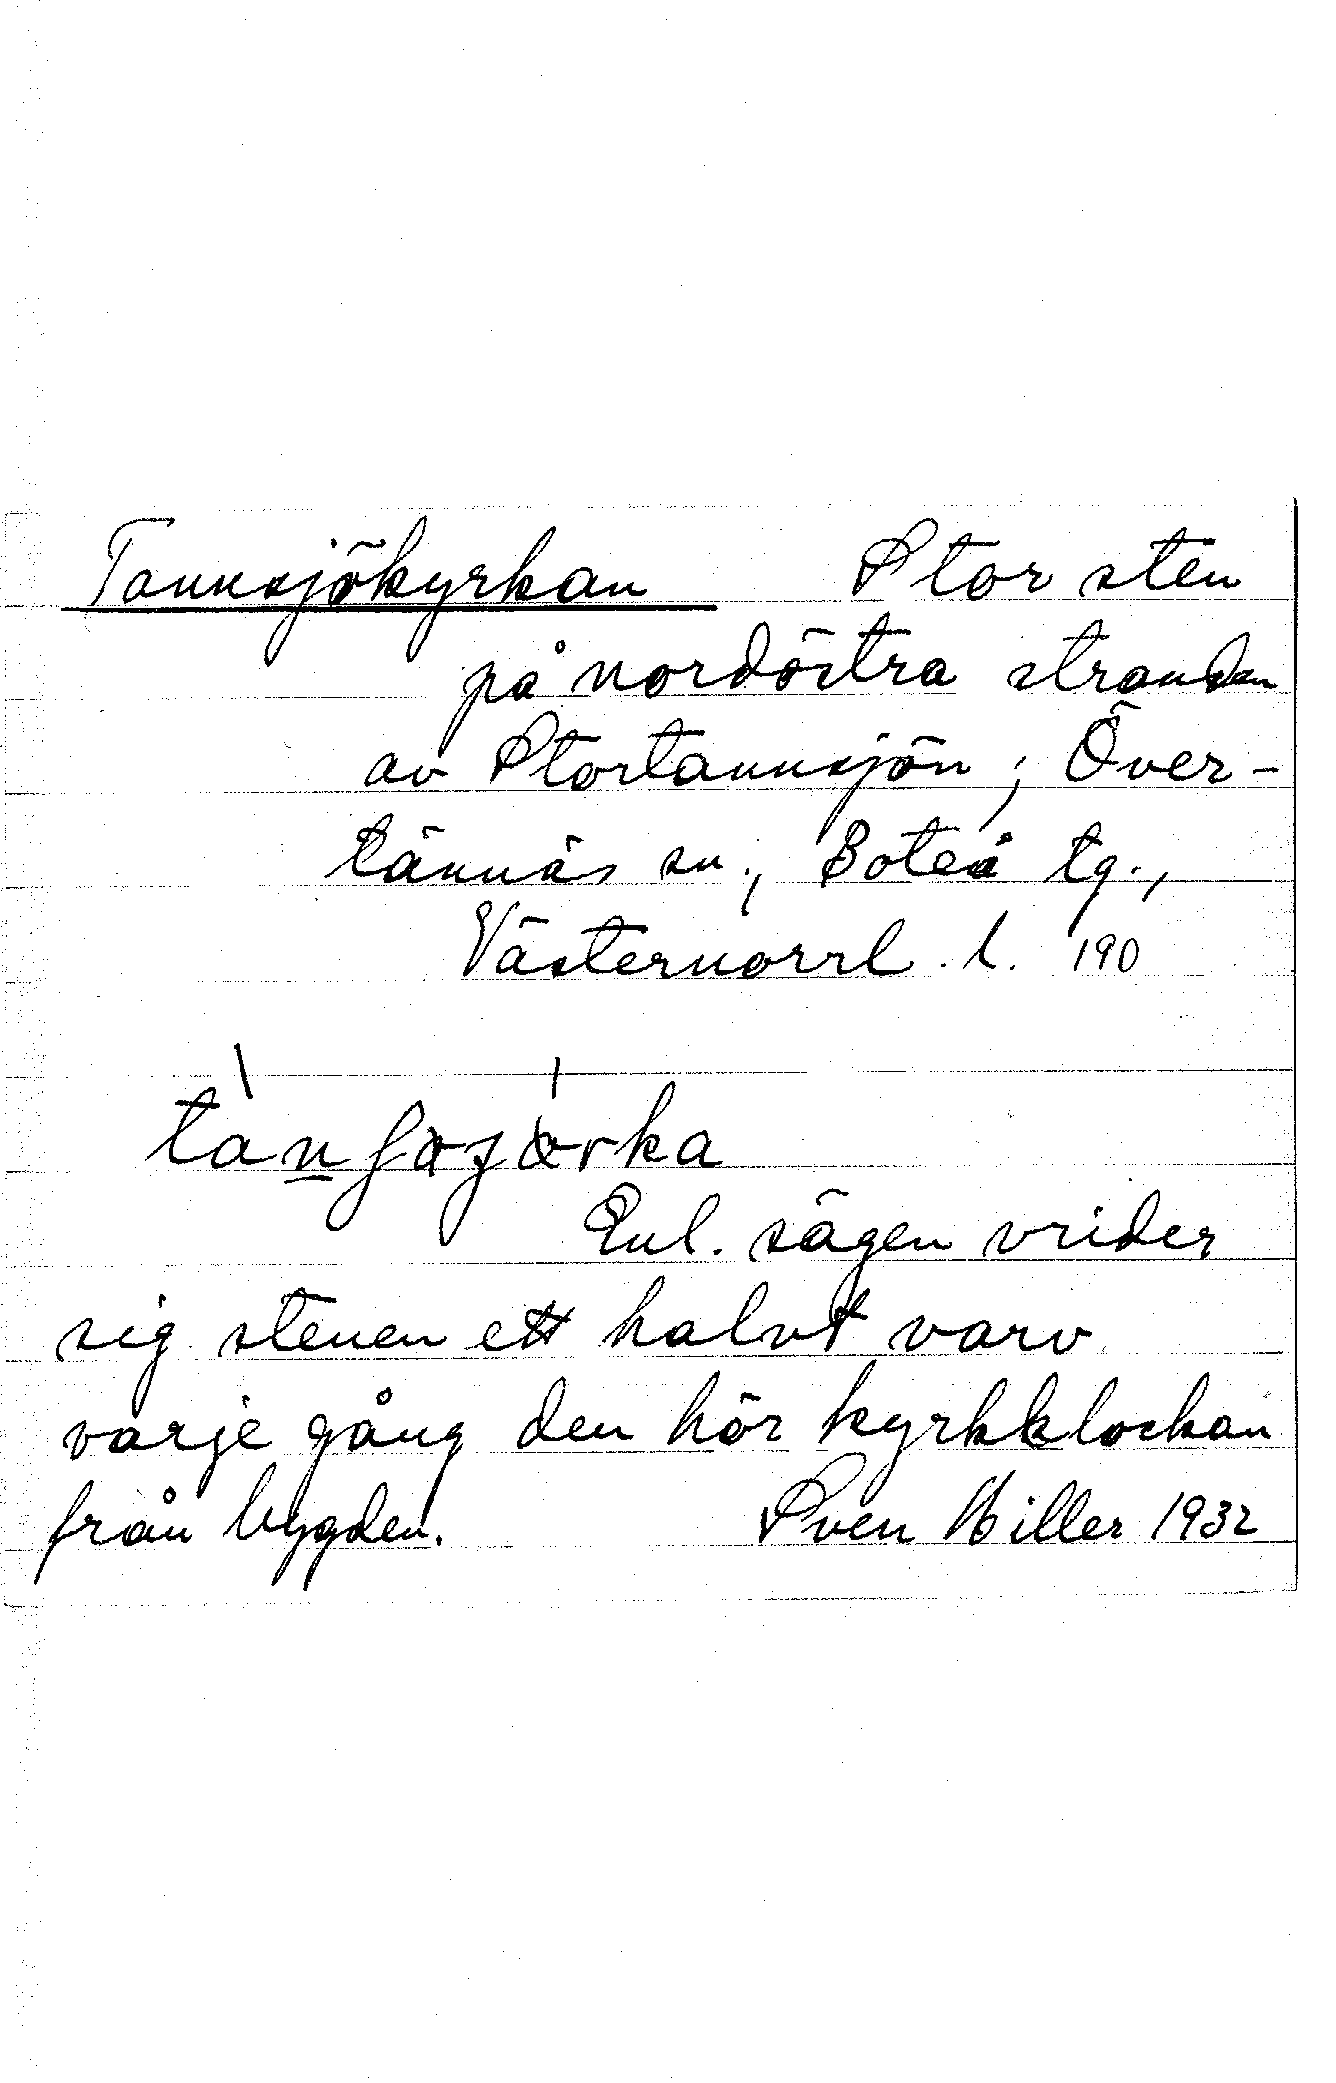 Tannsjökyrkan Stor sten
på nordöstra stranden
av Stortannsjön; Över-
tännäs sn., Boteå tg.,
Västernorrl. l. 190
Enl. sägen vrider
sig stenen ett halvt varv
varje gång den hör kyrkklockan
från bygden. Sven Hiller 1932